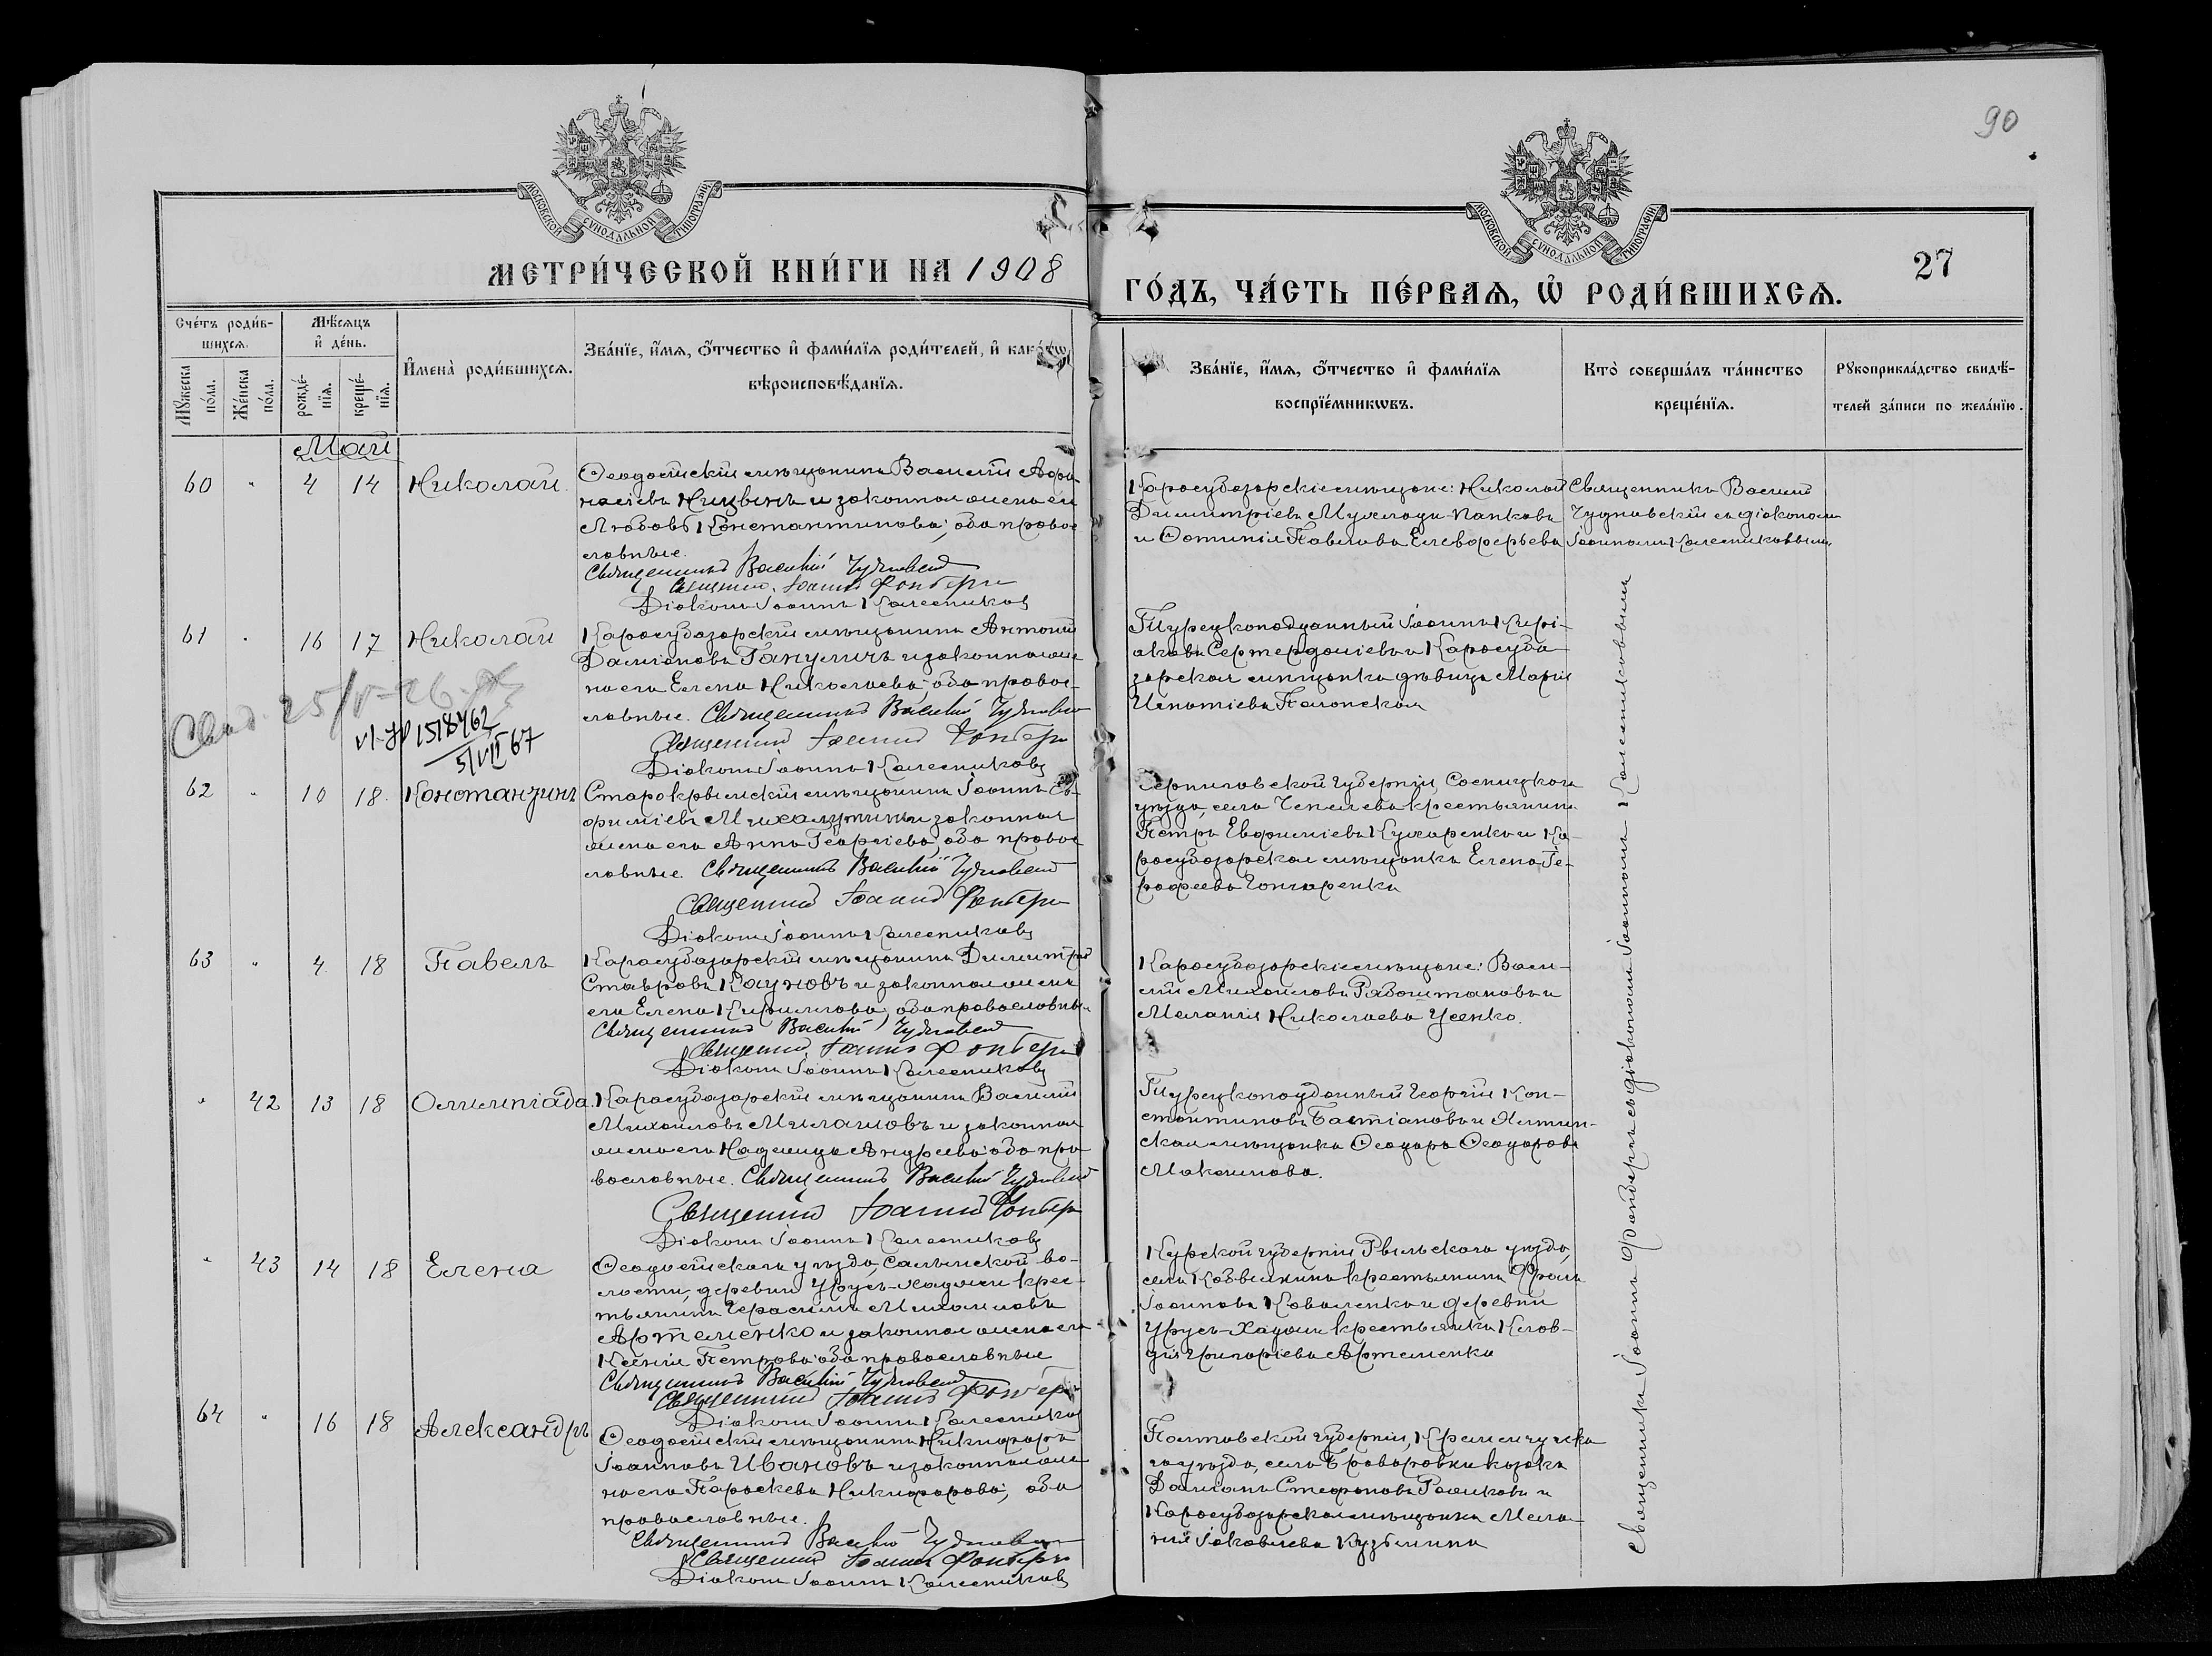 90
МОСКОВСКОЙ СѴНОДАЛЬНОЙ ТИПОГРАФІИ
МОСКОВСКОЙ СѴНОДАЛЬНОЙ ТИПОГРАФІИ
МЕТРИ́ЧЕСКОЙ КНИ́ГИ НА 1908
ГО́ДЪ, ЧА́СТЬ ПЕ́РВАѦ, Ѽ РОДИ́ВШИХСѦ.
27
Сче́тъ роди́в-
шихсѧ.
Мꙋ́жеска по́ла.
Же́нска по́ла.
Мѣ́сѧцъ
и҆ де́нь.
рожде́-нїѧ.
креще́-нїѧ.
И҆мена̀ роди́вшихсѧ.
Зва́нїе, и҆́мѧ, ѻ҆́тчество и҆ фами́лїѧ роди́телей, и҆ како́гѡ
вѣроисповѣ́данїѧ.
Зва́нїе, и҆́мѧ, ѻ҆́тчество и҆ фами́лїѧ
воспрїе́мникѡвъ.
Кто̀ соверша́лъ та́инство
креще́нїѧ.
Рꙋкоприкла́дство свидѣ́-
телей за́писи по жела́нїю.
Май
60 " 4 14 Николай
Ѳеодосійскій мѣщанинъ Василій Афа-
насіевъ Ницвинъ и законная жена его
Любовь Константинова; оба право-
славные.
Священникъ Василій Чудновскій
Священникъ Іоаннъ Фонберъ
Діаконъ Іоаннъ Колесниковъ
Карасубазарскіе мѣщане: Николай
Димитріевъ Папковъ
и Фотинія Павлова Елевферьева
Священникъ Василій
Чудновскій съ діакономъ
Іоанномъ Колесниковымъ
61 " 16 17 Николай
Карасубазарскій мѣщанинъ Антоній
Даміановъ Гануличъ и законная же-
на его Елена Николаева; оба право-
славные. Священникъ Василій Чудновскій
Священникъ Іоаннъ Фонберъ
Діаконъ Іоаннъ Колесниковъ
Турецкоподданный Іоаннъ Кирі-
аковъ и Карасуба-
зарская мѣщанка дѣвица Марія
Игнатіева
25/V-26
1518462
5/VII 67
62 " 10 18 Константинъ
Старокрымскій мѣщанинъ Іоаннъ Ев-
фиміевъ и законная
жена его Анна Георгіева; оба право-
славные. Священникъ Василій Чудновскій
Священникъ Іоаннъ Фонберъ
Діаконъ Іоаннъ Колесниковъ
Черниговской губерніи, Сосницкаго
уѣзда, села крестьянинъ
Петръ Евфиміевъ Кухаренко и Ка-
расубазарская мѣщанка Елена
Гончаренко
63 " 4 18 Павелъ
Карасубазарскій мѣщанинъ Димитрій
Ставровъ Кауновъ и законная жена
его Елена Кириллова; оба православные
Священникъ Василій Чудновскій
Священникъ Іоаннъ Фонберъ
Діаконъ Іоаннъ Колесниковъ
Карасубазарскіе мѣщане: Васи-
лій Михаиловъ и
Меланія Николаева Усенко.
" 42 13 18 Олимпіада
Карасубазарскій мѣщанинъ Василій
Михаиловъ Милашовъ и законная
жена его Надежда Андреева; оба пра-
вославные. Священникъ Василій Чудновскій
Священникъ Іоаннъ Фонберъ
Діаконъ Іоаннъ Колесниковъ
Турецкоподданный Георгій Кон-
стантиновъ Бастіановъ и Ялтин-
ская мѣщанка Ѳеодора Ѳеодорова
Максимова.
" 43 14 18 Елена
Ѳеодосійскаго уѣзда, Салынской во-
лости, деревни Урусъ-Ходжи крес-
тьянинъ Герасимъ Михаиловъ
Артеменко и законная жена его
Ксенія Петрова; оба православные
Священникъ Василій Чудновскій
Священникъ Іоаннъ Фонберъ
Діаконъ Іоаннъ Колесниковъ
Курской губерніи Рыльскаго уѣзда,
села крестьянинъ
Іоанновъ Коваленко и деревни
Урусъ-Ходжи крестьянка Клав-
дія Григоріева Артеменко
64 " 16 18 Александръ
Ѳеодосійскій мѣщанинъ Никифоръ
Іоанновъ Ивановъ и законная же-
на его Параскева Никифорова; оба
православные.
Священникъ Василій Чудновскій
Священникъ Іоаннъ Фонберъ
Діаконъ Іоаннъ Колесниковъ
Полтавской губерніи, Кременчугска-
го уѣзда, села Броваровки козакъ
Даміанъ Стефановъ и
Карасубазарская мѣщанка Мела-
нія Іаковлева Кузьмина
Священникъ Іоаннъ Фонберъ съ діакономъ Іоанномъ Колесниковымъ